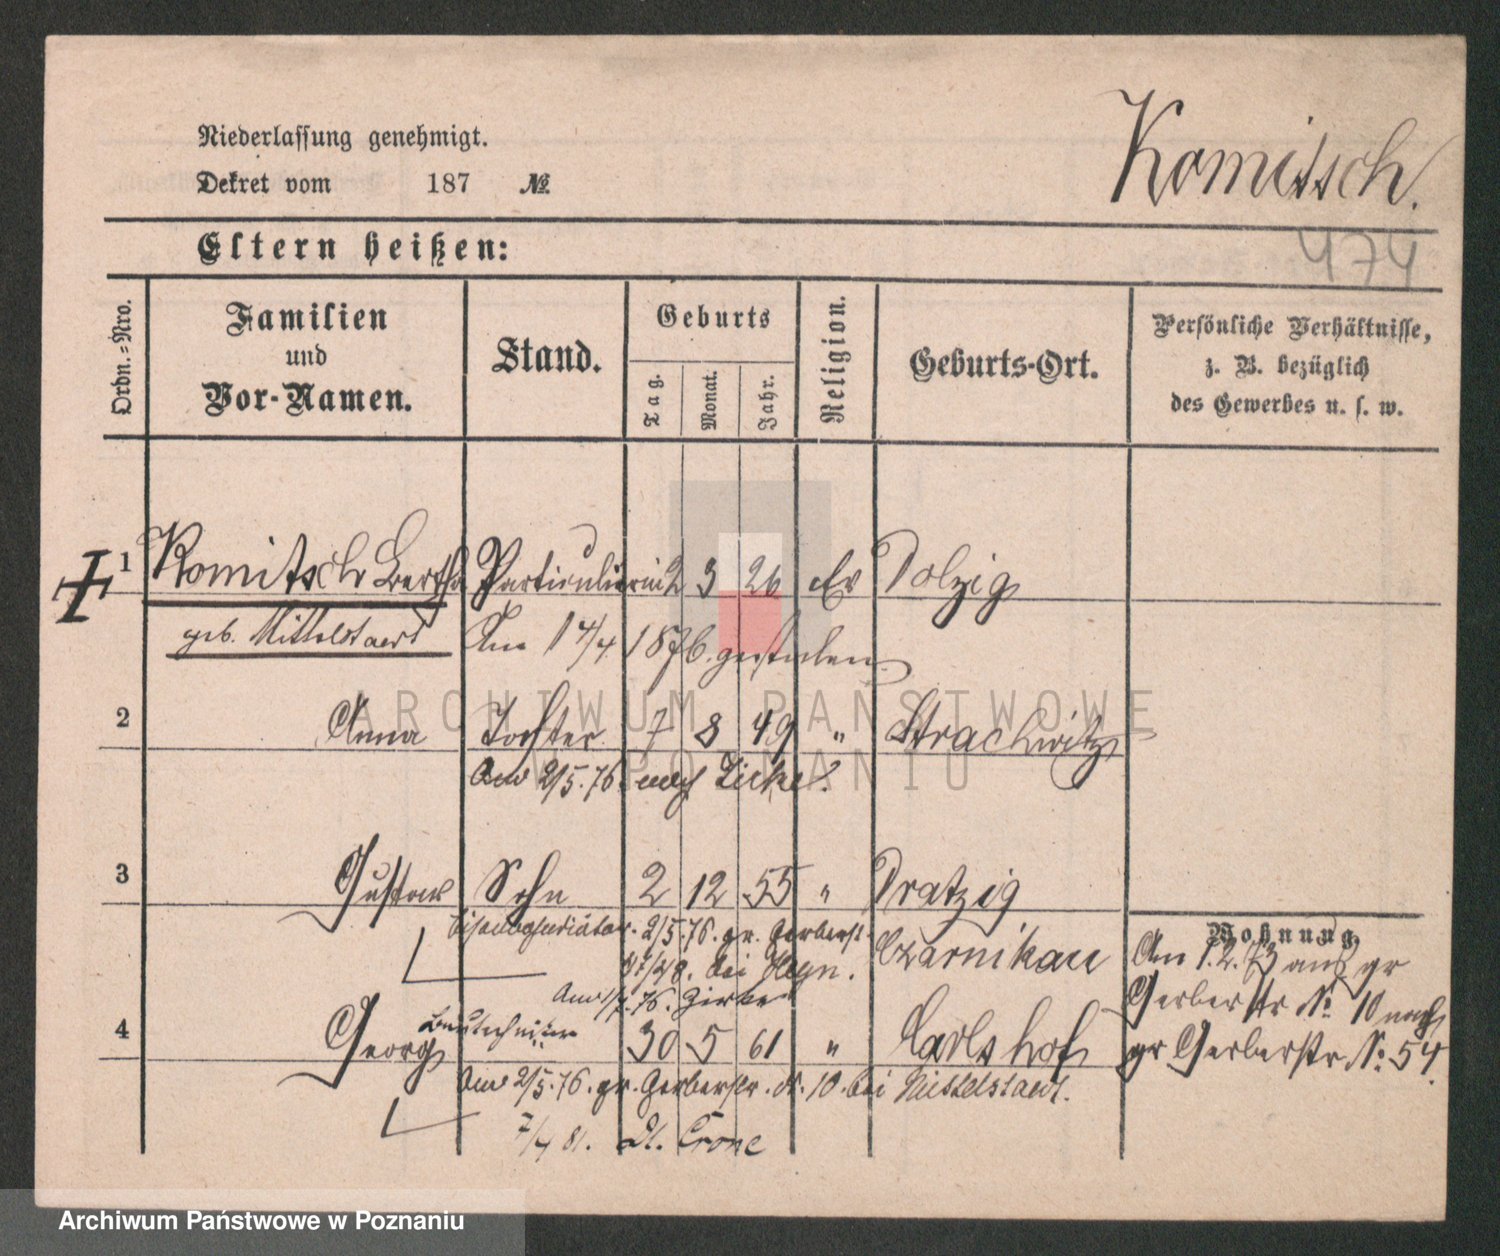 Niederlassung genehmigt.
Komitsch.
Dekret vom 187 №
474
Eltern heißen:
Ordn.-Nro.
Familien und Vor-Namen.
Stand.
Geburts
Tag. Monat. Jahr.
Religion.
Geburts-Ort.
Persönliche Verhältnisse,
z. B. bezüglich
des Gewerbes u. s. w.
1 Komitsch Bertha Particulierin 2 3 26 Ev Dolzig
geb. Mittelstaedt Am 14/4 1876 gestorben
ARCHIWUM PAŃSTWOWE
2 Anna Tochter 7 8 49 " Strachwitz
W POZNANIU
Am 2/5.76. nach
3 Gustav Sohn 2 12 55 " Dratzig
2/5.76. gr. Gerberst.
Czarnikau
bei
Wohnung
Am 1.2.73 aus gr
Gerberstr № 10 nach
gr Gerberstr. №. 54.
76.
4 Georg Bautechniker 30 5 61 " Carlshof
Am 2/5.76. gr. Gerberstr. № 10. bei Mittelstaedt.
7/4 81. Dt. Crone
Archiwum Państwowe w Poznaniu